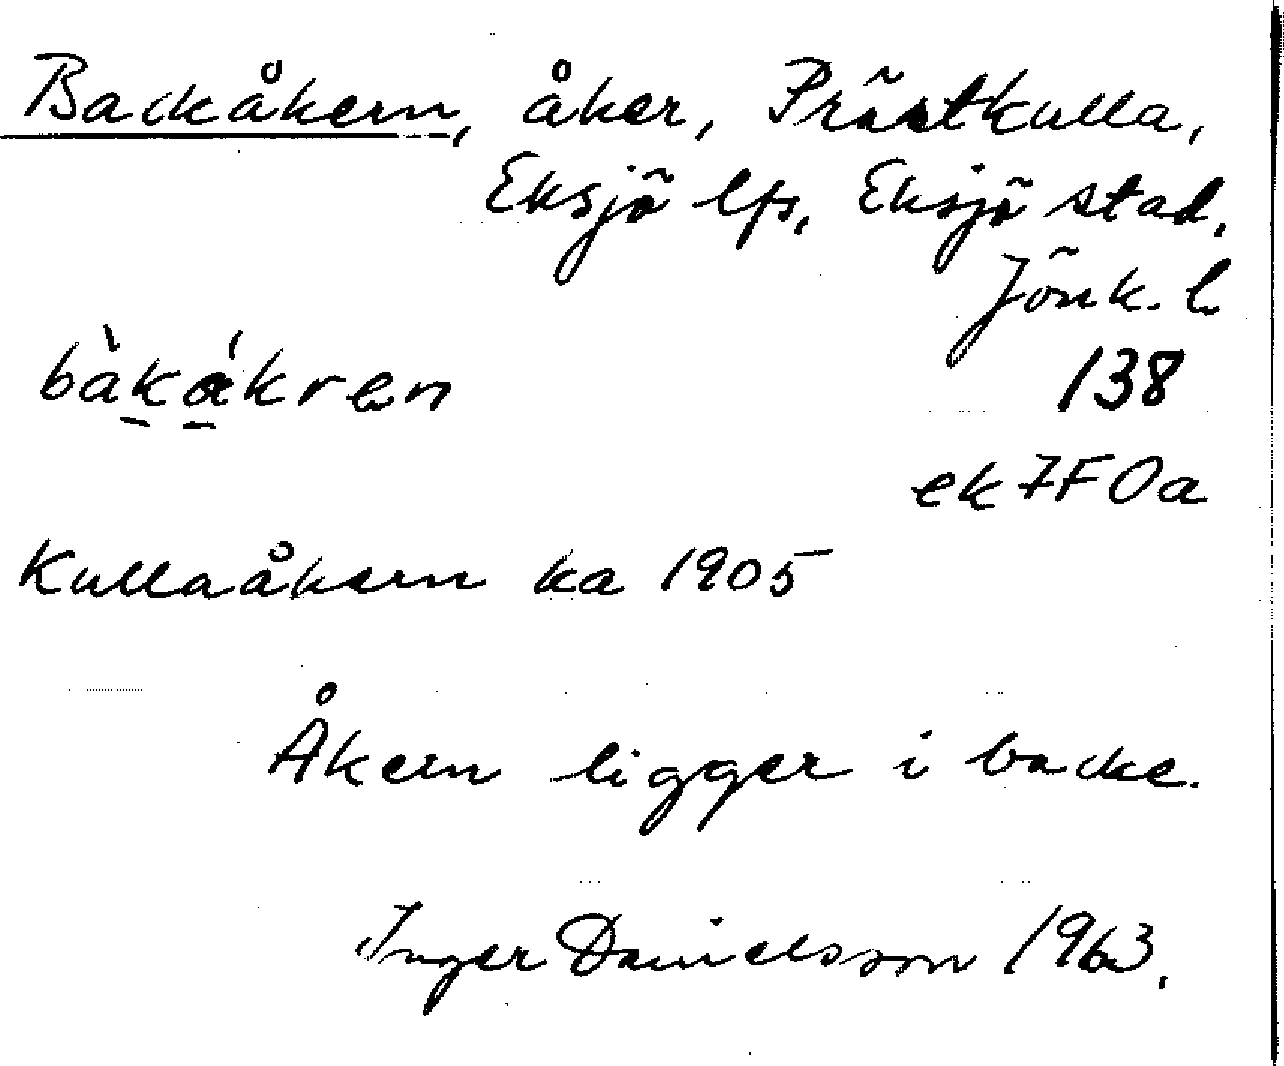 Backåkern, åker, Prästkulla,
Eksjö lfs, Eksjö stad,
Jönk. l.
bàkákren 138
ek 7F0a
Kullaåkern ka 1905
Åkern ligger i backe.
Inger Danielsson 1963.